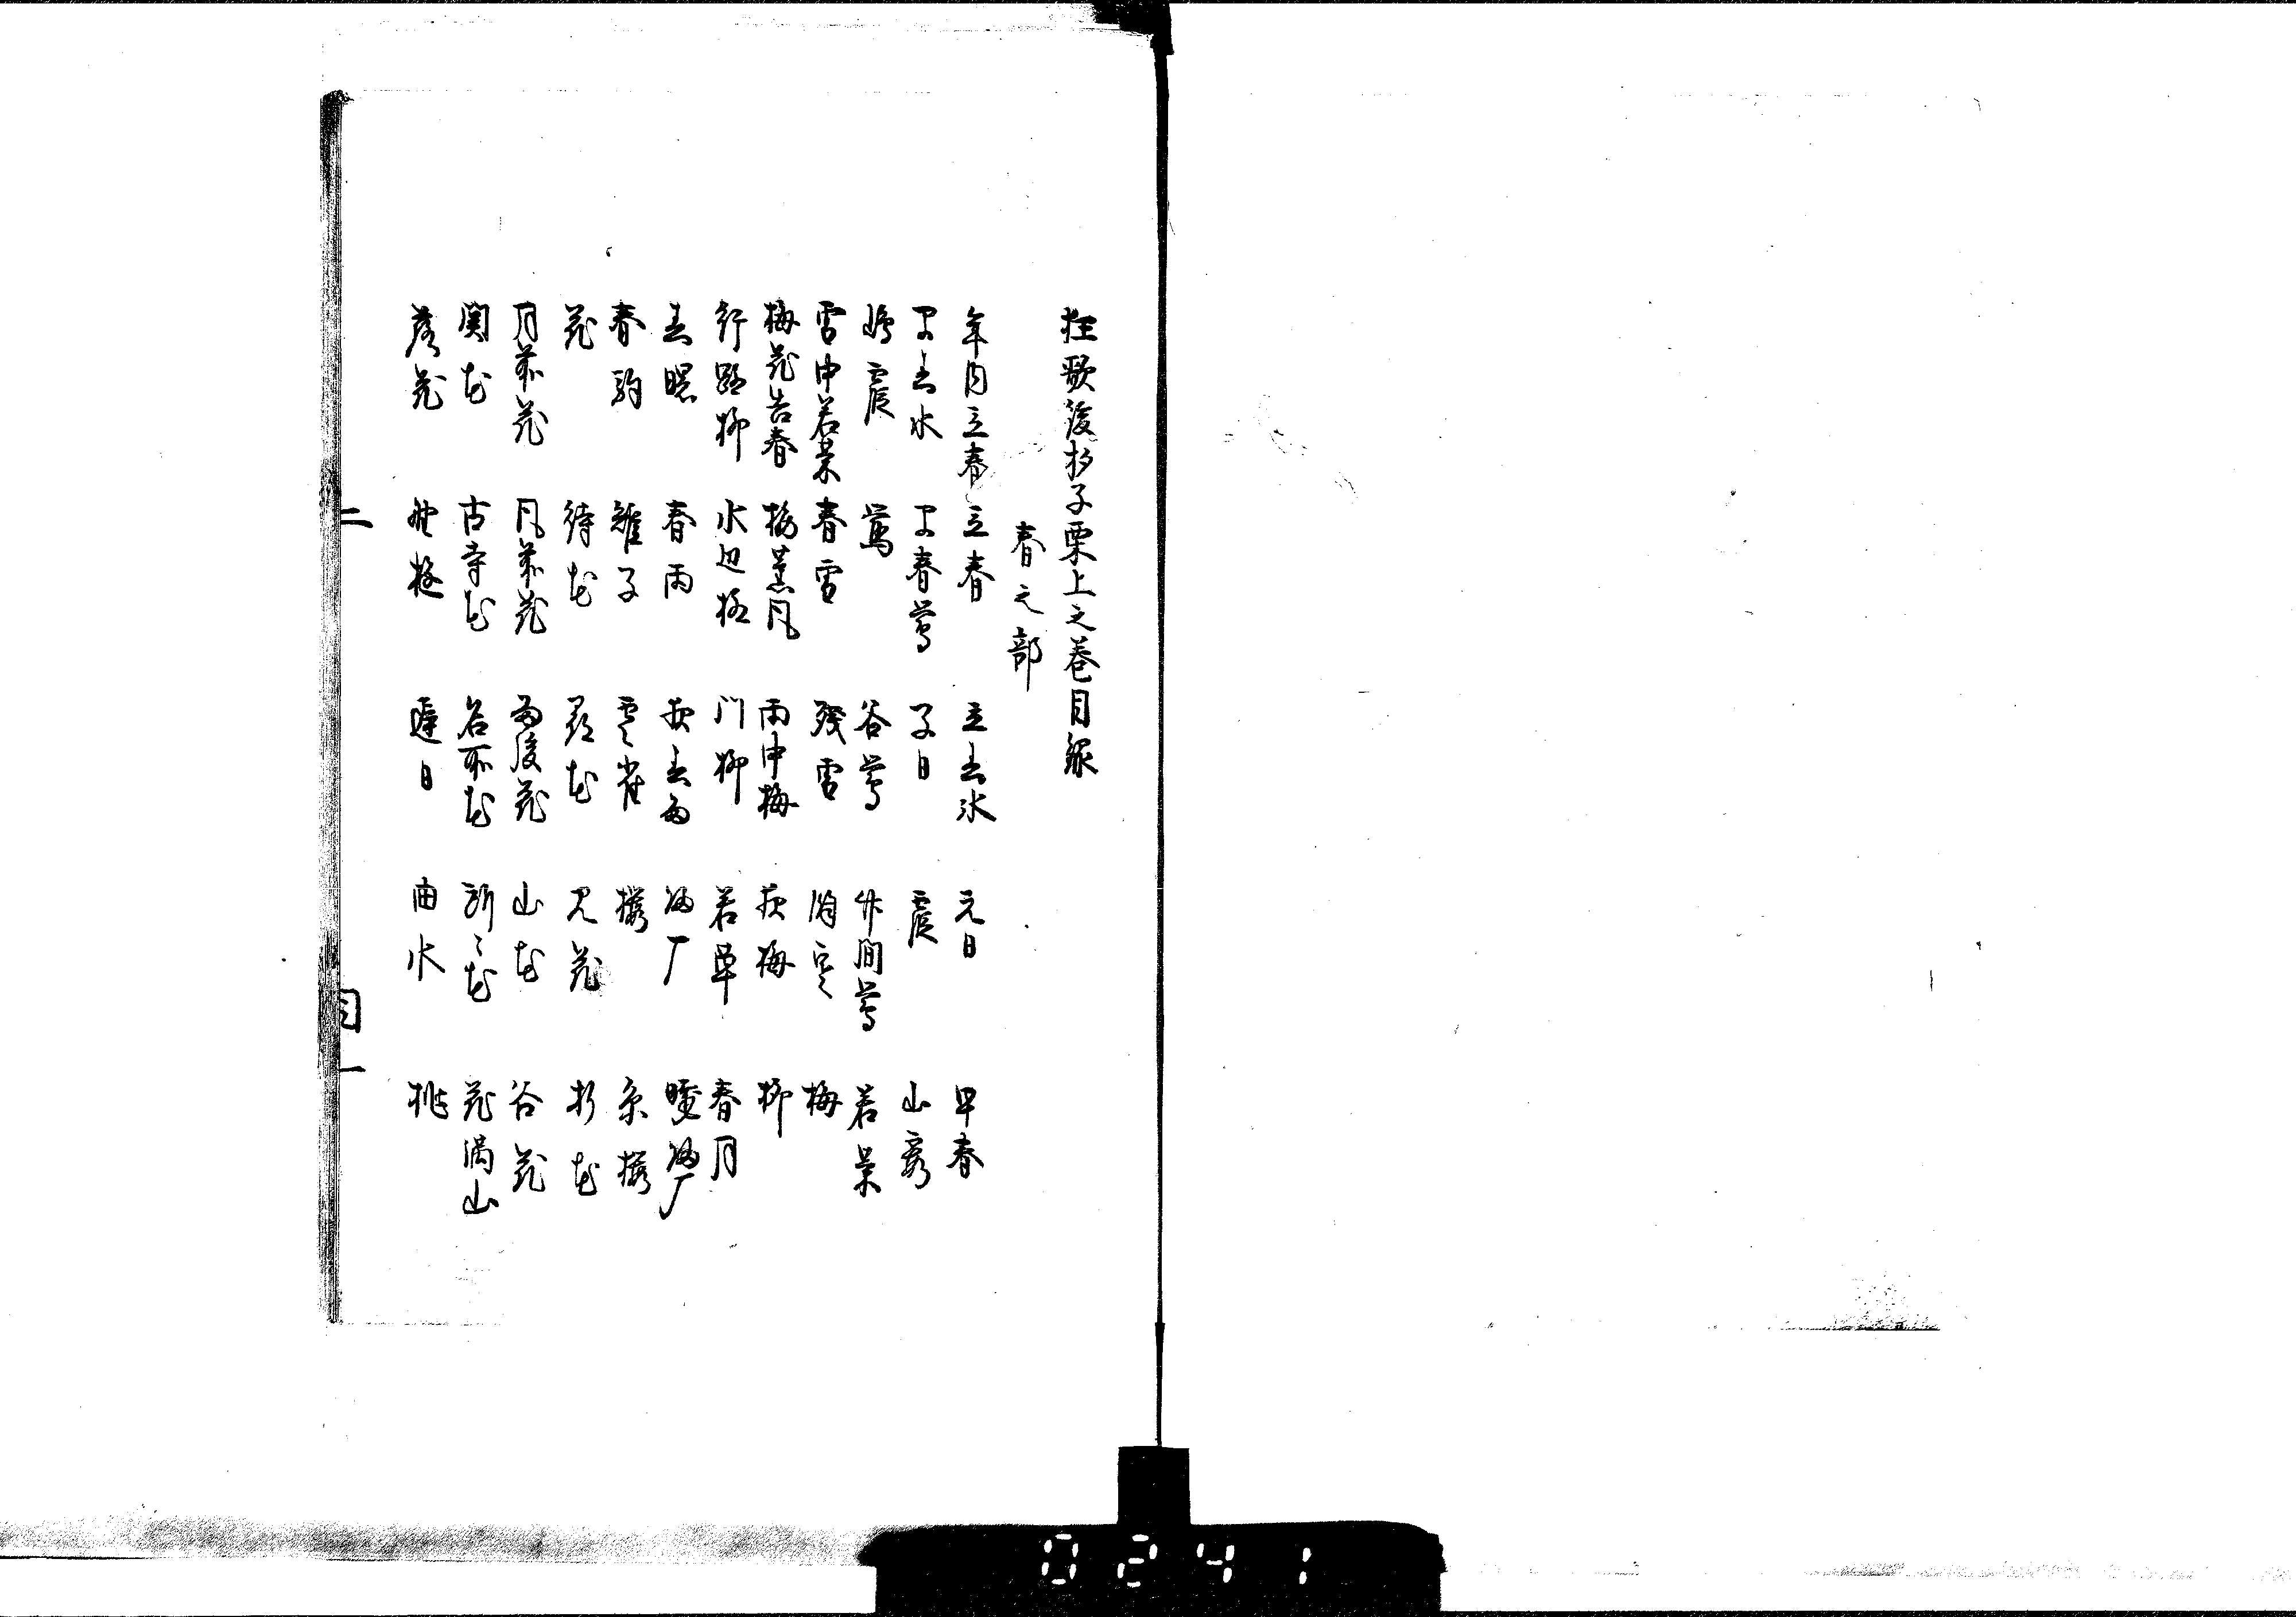 狂歌後杓子栗上之巻目録
春之部
年内立春 立春 立春氷 元日 早春
早春氷 早春鶯 子日 霞 山霞
嶋霞 鶯 谷鶯 竹間鶯 若菜
雪中若菜 春雪 残雪 余寒 梅
梅花告春 梅薫風 雨中梅 夜梅 柳
行路柳 水辺柳 門柳 若草 春月
春曙 春雨 夜春雨 帰厂 暁帰厂
春駒 雉子 雲雀 桜 糸桜
花 待花 尋花 見花 折花
月前花 風前花 雨後花 山花 谷花
関花 古寺花 名所花 所々花 花満山
落花 遅日 曲水 桃
二 目一
0241